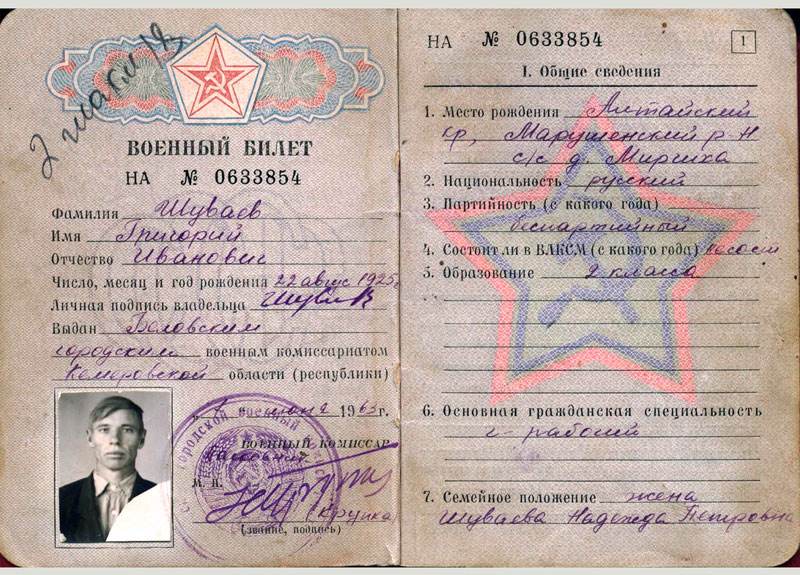 2 класс
ВОЕННЫЙ БИЛЕТ
НА № 0633854
Фамилия Шуваев
Имя Григорий
Отчество Иванович
Число, месяц и год рождения 22 август 1925г
Личная подпись владельца
Выдан Беловским
городским военным комиссариатом
Кемеровской области (республики)
1963г.
ВОЕННЫЙ КОМИССАР
М. П.
(Крупка)
(звание, подпись)
НА № 0633854
1
I. Общие сведения
1. Место рождения Алтайский
кр, Марушенский р-н
с/с д.
2. Национальность русский
3. Партийность (с какого года)
беспартийный
4. Состоит ли в ВЛКСМ (с какого года) не сост
5. Образование 2 класса
6. Основная гражданская специальность
рабочий
7. Семейное положение жена
Шуваева Надежда Петровна